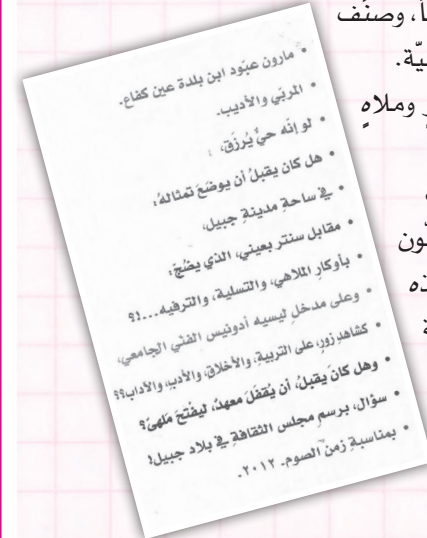 اً، وصنّف
يّة.
وملاهٍ
ون
ذه
ة
• مارون عبّود ابن بلدة عين كفاع.
• المربّي والأديب.
• لو إنّه حيٌّ يُرزَق،
• هل كان يقبلُ أن يوضَعَ تمثالهُ:
• في ساحةِ مدينةِ جبيل،
• مقابل سنتر بعيني، الذي يضُجّ:
• بأوكارِ الملاهي، والتسلية، والترفيه...!؟
• وعلى مدخلِ ليسيه أدونيس الفنّي الجامعي،
• كشاهدِ زورٍ، على التربيةِ، والأخلاقِ، والأدبِ، والآداب؟؟
• وهل كانَ يقبلُ، أن يُقفَلَ معهدٌ، ليفْتحَ مَلهىً؟
• سؤال، برسمِ مجلس الثقافةِ في بلاد جبيل!
• بمناسبةِ زمن الصوم. ٢٠١٢.